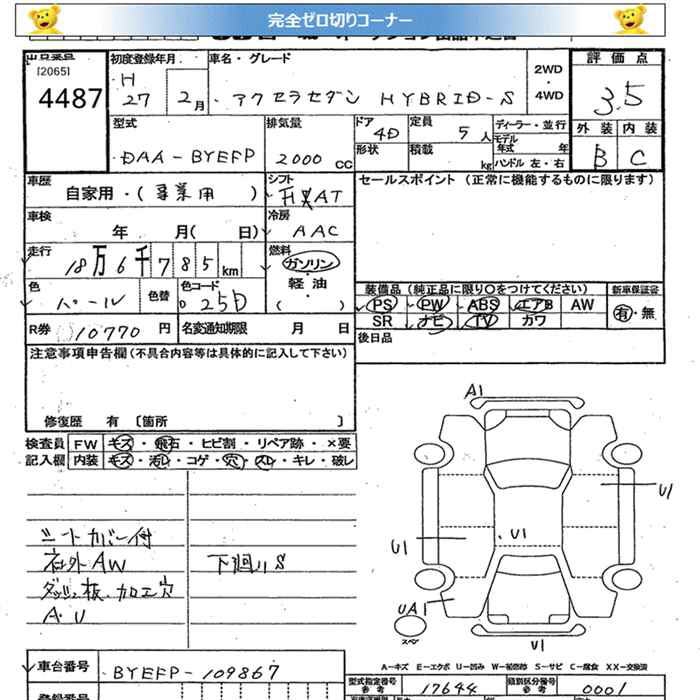 完全ゼロ切りコーナー
[2065]
4487
初度登録年月
H
27 2月
車名・グレード
アクセラセダン HYBRID-S
2WD
4WD
評価点
3.5
外装 内装
B C
型式
DAA-BYEFP
排気量
2000 CC
ドア
4D
形状
定員
5人
積載
kg
ディーラー・並行
モデル年式 年
ハンドル 左・右
車歴
自家用・(事業用 )
シフト
車検
年 月( 日)
冷房
AAC
走行
18万6千785km
燃料
ガソリン
軽油
( )
色
パール
色替
色コード
25D
R券
10770円
名変通知期限 月 日
セールスポイント (正常に機能するものに限ります)
装備品(純正品に限り○をつけてください)
PS PW ABS エアB AW
SR ナビ TV カワ
新車保証書
有・無
後日品
注意事項申告欄(不具合内容等は具体的に記入して下さい)
修復歴 有 〔箇所 〕
検査員記入欄
FW キズ・飛石・ヒビ割・リペア跡・×要
内装 キズ・汚れ・コゲ・穴・スレ・キレ・破レ
シートカバー付
社外AW
ダッシュ板、加工穴
A・U
下廻りS
A1
U1
U1
U1
UA1
スペア
U1
A-キズ E-エクボ U-凹み W-補修跡 S-サビ C-腐食 XX-交換済
車台番号
BYEFP-109867
型式指定番号
参考
17644
類別区分番号
参考
0001
登録番号